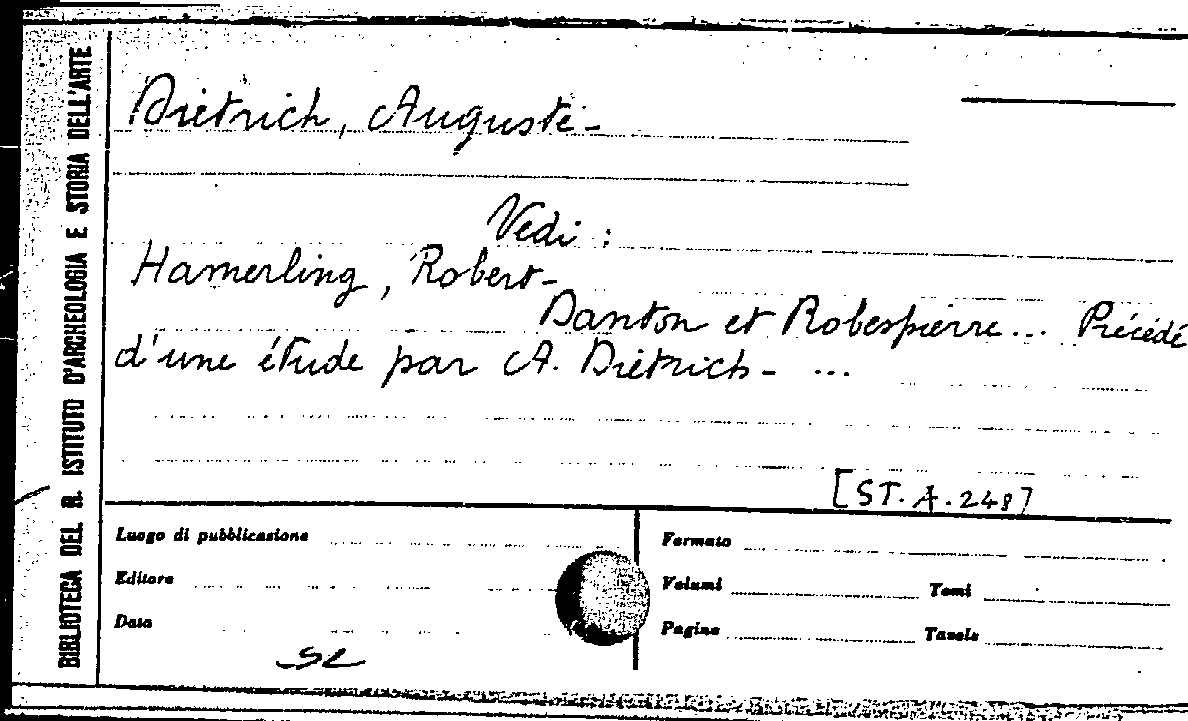 BIBLIOTECA DEL R. ISTITUTO D'ARCHEOLOGIA E STORIA DELL'ARTE
Dietrich, Auguste-
Vedi :
Hamerling, Robert-
Danton et Robespierre... Précédé
d'une étude par A. Dietrich- ...
[ST. A. 248]
Luogo di pubblicazione
Editore
Data
Formato
Volumi Tomi
Pagine Tavole